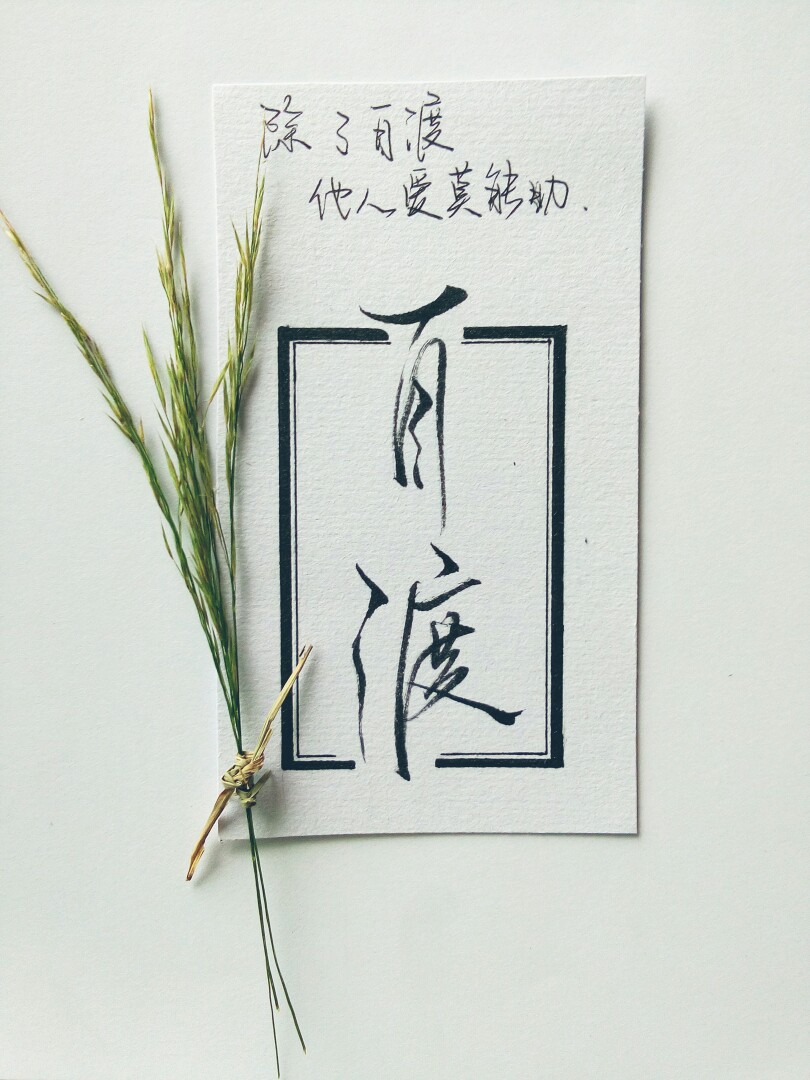 除了百渡
他人爱莫能助.
百渡